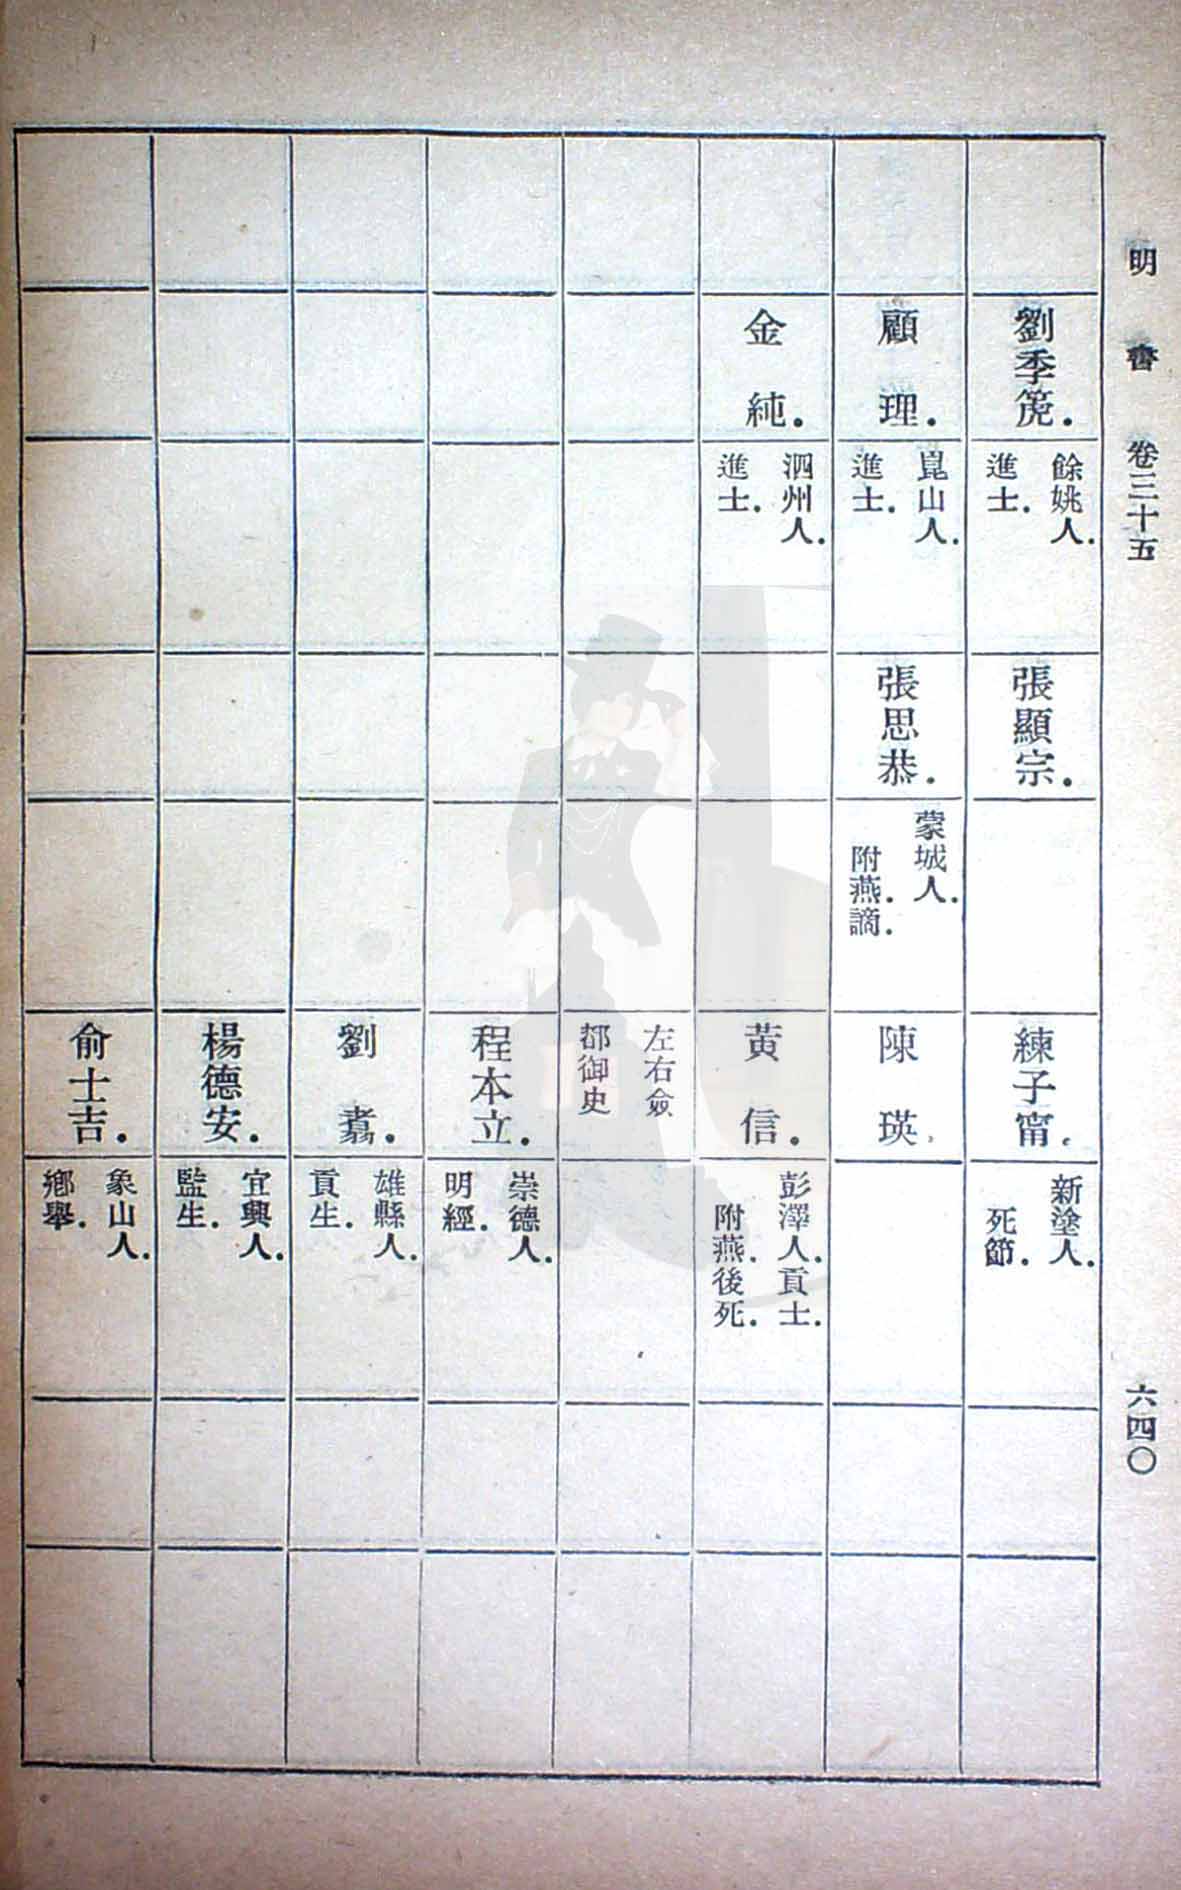 明書 卷三十五
六四〇
劉季箎.
餘姚人.
進士.
張顯宗.
練子甯.
新塗人.
死節.
顧理.
崑山人.
進士.
張思恭.
蒙城人.
附燕.謫.
陳瑛.
金純.
泗州人.
進士.
黃信.
彭澤人.貢士.
附燕.後死.
左右僉
都御史
程本立.
崇德人.
明經.
劉翥.
雄縣人.
貢生.
楊德安.
宜興人.
監生.
俞士吉.
象山人.
鄉舉.